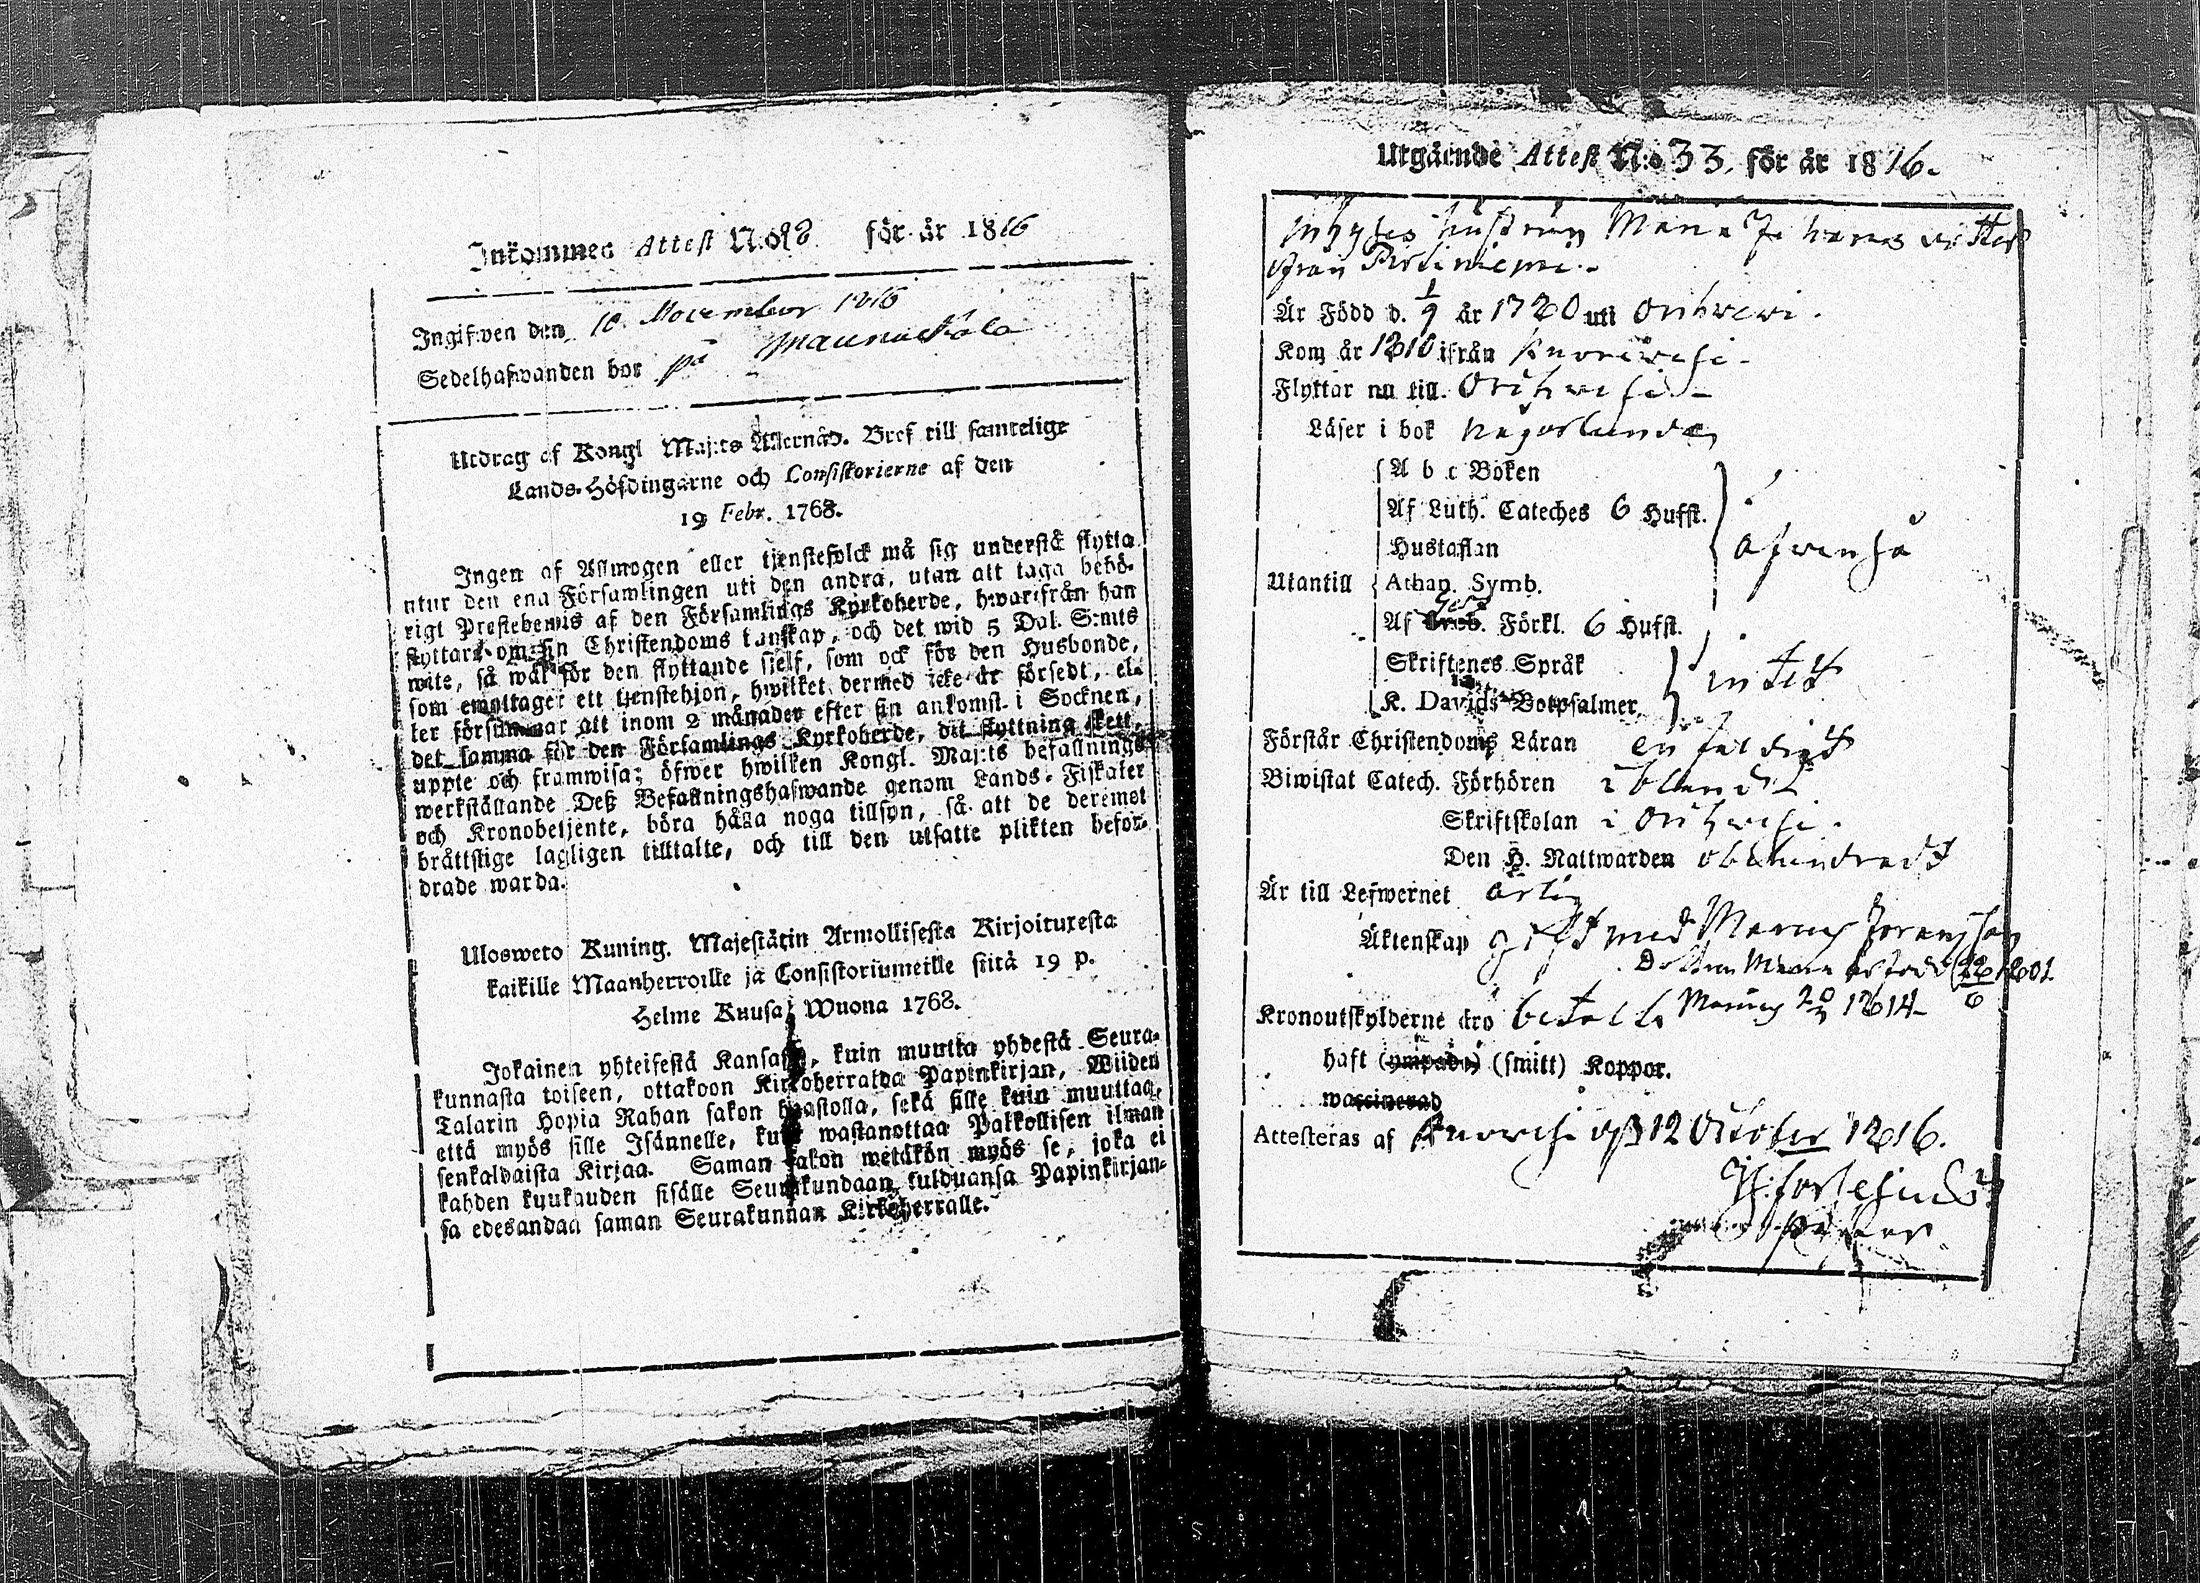 Inkommen Attest N:o 98 för år 1816
Ingifwen den 10 November 1816
Sedelhafwanden bor på Maunuksela
Utdrag af Kongl Maj:ts Allernåd. Bref till samtelige
Lands-Höfdingarne och Consistorierne af den
19 Febr. 1768.
Ingen af Allmogen eller tjenstefolck må sig understå flytta
utur den ena Församlingen uti den andra, utan att taga behö-
rigt Prestebewis af den Församlings Kyrkoherde, hwarifrån han
flyttar, om sin Christendoms kunskap, och det wid 5 Dal. S:mts
wite, så wäl för den flyttande sjelf, som ock för den Husbonde,
som emottager ett tjenstehjon, hwilket dermed icke är försedt, el-
ler försummar att inom 2 månader efter sin ankomst i Socknen,
det samma för den Församlings Kyrkoherde, dit flyttning skett,
uppte och framwisa; öfwer hwilken Kongl. Maj:ts befallnings
werkställande Deß Befallningshafwande genom Lands-Fiskaler
och Kronobetjente, böra hålla noga tillsyn, så att de deremot
bråttslige lagligen tilltalte, och till den utsatte plikten beford-
drade warda.
Ulosweto Kuning. Majestätin Armollisesta Kirjoituxesta
kaikille Maanherroille ja Consistoriumeille siitä 19 p.
Helme Kuusa Wuona 1768.
Jokainen yhteisestä Kansasta, kuin muutta yhdestä Seura-
kunnasta toiseen, ottakoon Kirkoherralda Papinkirjan, Wiiden
Talarin Hopia Rahan sakon haastolla, sekä sille kuin muuttaa,
että myös sille Isännelle, kuin wastanottaa Palkollisen ilman
senkaldaista Kirjaa. Saman sakon wetäkön myös se, joka ei
kahden kuukauden sisälle Seurakundaan tulduansa Papinkirjan-
sa edesandaa saman Seurakunnan Kirkoherralle.
Utgående Attest N:o 33. för år 1816.
Inhyses hustrun Maria Johans dotter
från
Är Född d. 1/9 år 1780 uti Orihwesi.
Kom år 1810 ifrån Kuorewesi
Flyttar nu till Orihwesi
Läser i bok någorlunda
A b c Boken
Af Luth. Cateches 6 Hufst.
Hustaflan
äfwenså
Utantill Athan. Symb.
Af Förkl. 6 Hufst.
Skriftenes Språk
K. Davids Botpsalmer
intet
Förstår Christendoms Läran enfaldigt
Biwistat Catech. Förhören ibland
Skriftskolan i Orihwesi.
Den H. Nattwarden obehindradt
Är till Lefwernet ärlig
Äktenskap gift med
Dottren Maria är född 22/6 1801.
Kronoutskylderne äro betalte 1814
haft (ympade) (smitt) Koppor.
waccinerad
Attesteras af Kuorewesi d. 12 October 1816.